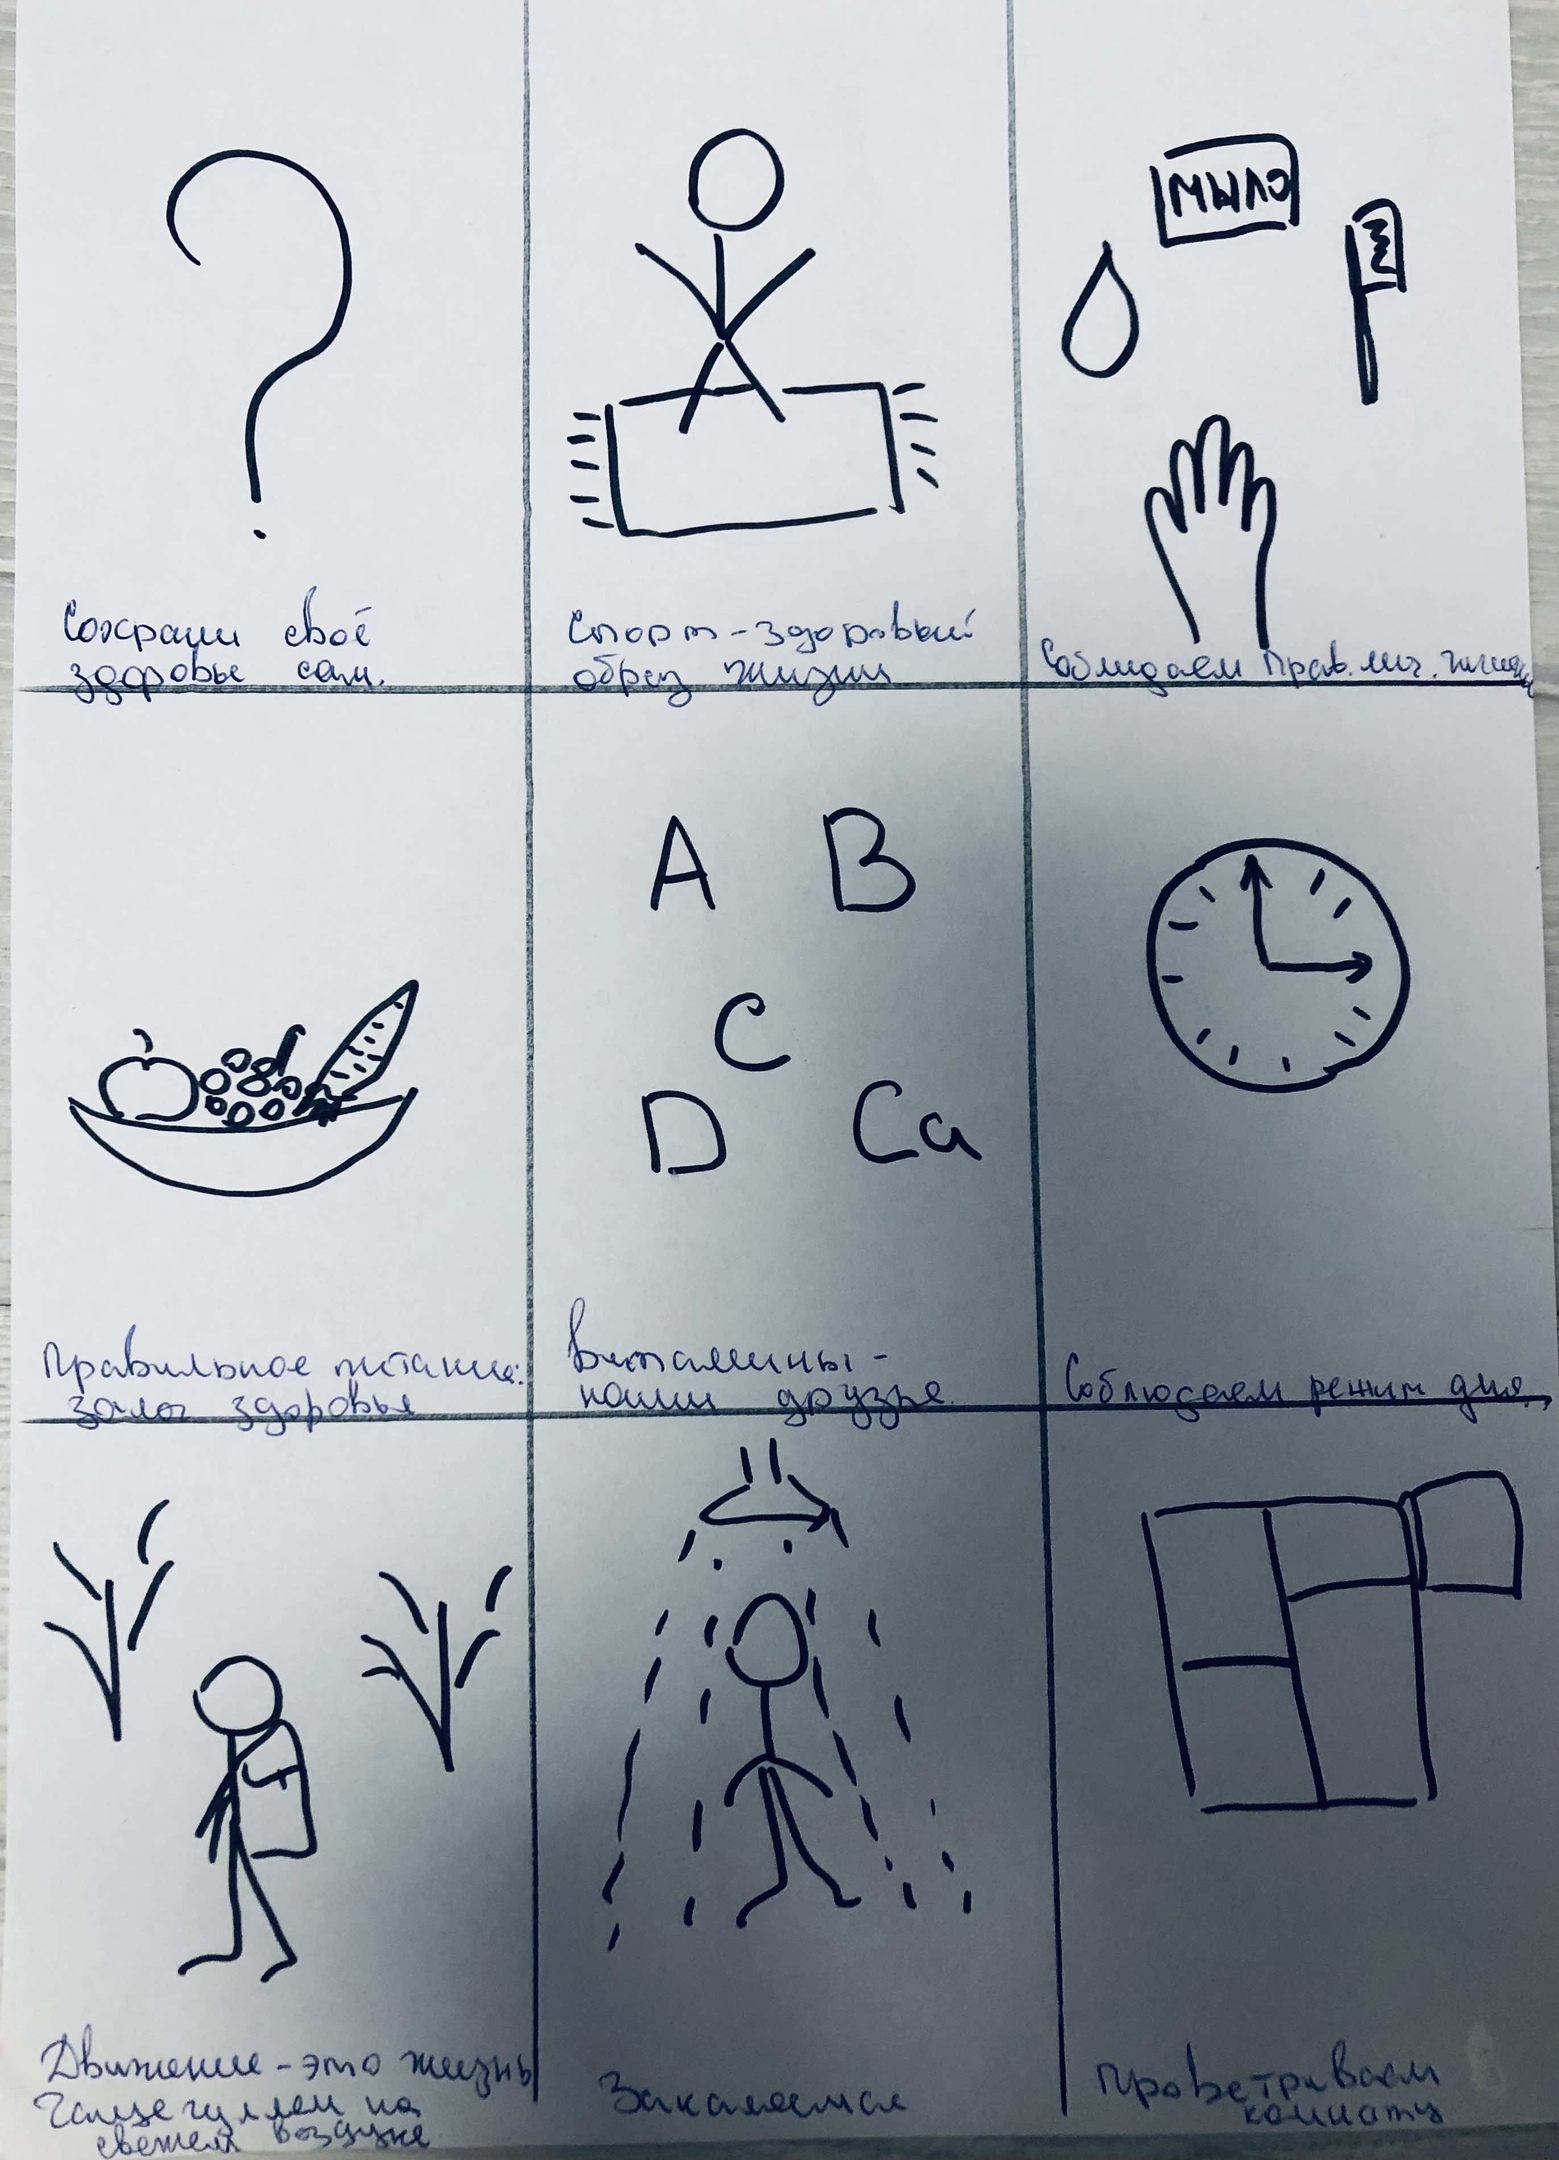 Сохрани своё
здоровье сам.
Спорт - здоровый
образ жизни
мыло
Соблюдаем прав. лич. гигиены
Правильное питание:
залог здоровья
A B
C
D Ca
Витамины -
наши друзья.
Соблюдаем режим дня.
Движение - это жизнь
Чаще гуляем на
свежем воздухе
Закаляемся
Проветриваем
комнату